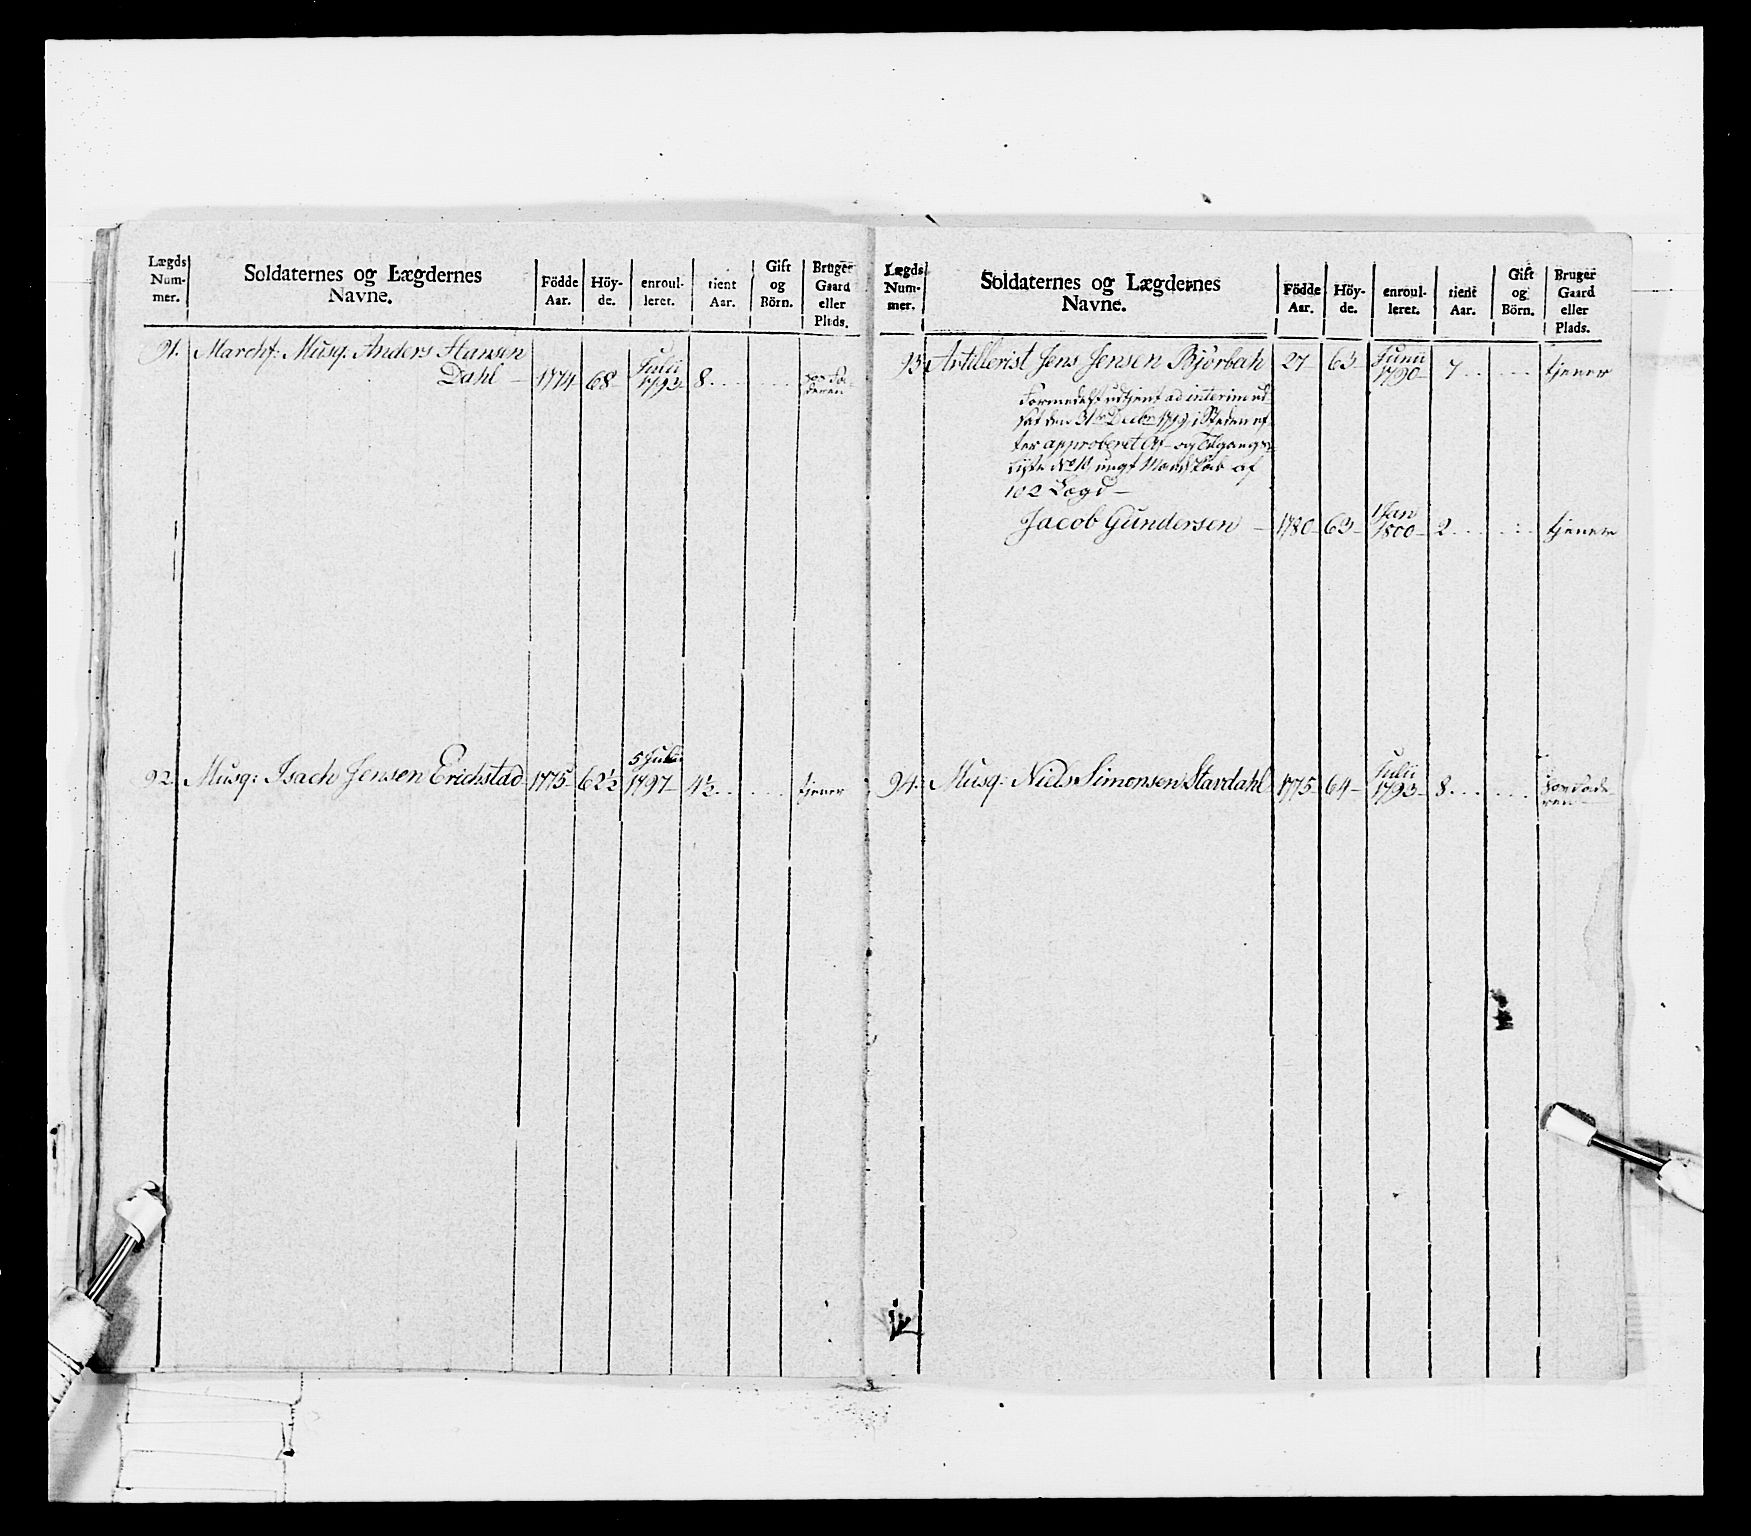 Lægds Num- mer.
Soldaternes og Lægdernes Navne.
Födde Aar.
Höy- de.
enroul- leret.
tient Aar.
Gift og Börn.
Bruger Gaard eller Plads.
91. Marchf: Musq: Anders Hansen
Dahl – 1774 68 Julii 1793 8 . . . . . . hos Fa- deren
92. Musq: Isach Jensen Erichstad 1775 62½ 5 Julii 1797 4½ . . . . . tjener
Lægds Num- mer.
Soldaternes og Lægdernes Navne.
Födde Aar.
Höy- de.
enroul- leret.
tient Aar.
Gift og Börn.
Bruger Gaard eller Plads.
93 Artillerist Jens Jensen Björbæk 27 63 Junii 1790 7 . . . . . tjener
Formedelst udtient ad interim ud
sat den 31te Decbr 1799 i Steden ef
ter approberet Af- og Tilgangs-
Liste No ungt Mandskab af
102 Lægd –
Jacob Gundersen – 1780 63 1 Jan 1800 2 . . . . . tjener
94. Musq: Niels Simonsen Stavdahl 1775 64 Julii 1793 8 . . . . . hos Fade- ren